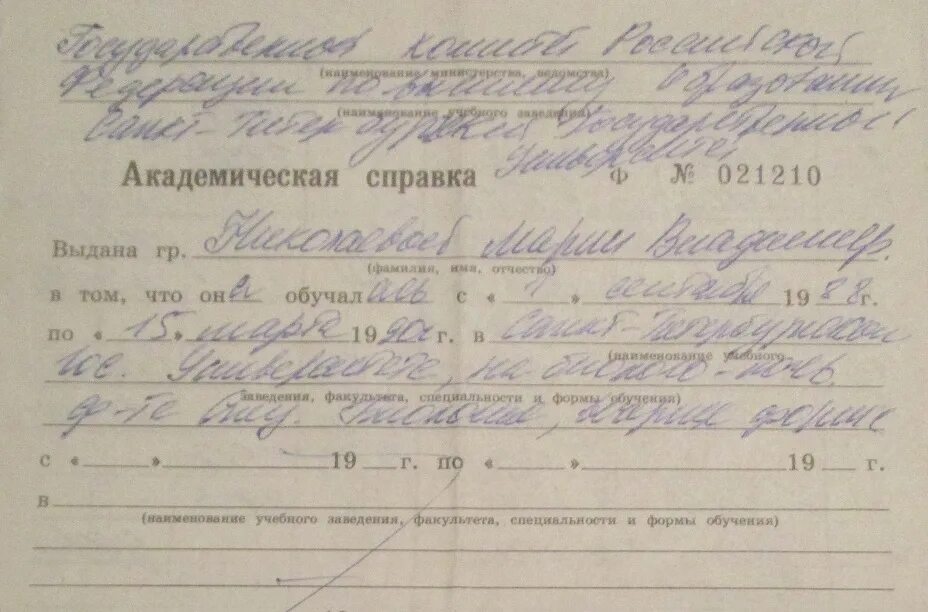 Государственной комитет Российской
(наименование министерства, ведомства)
Федерации по высшему образованию
(наименование учебного заведения)
Санкт-Петербургский Государственной
Университет
Академическая справка Ф № 021210
Выдана гр. Николаевой Марии Владимир.
(фамилия, имя, отчество)
в том, что она обучалась с « 1 » сентября 1988 г.
по « 15 » марта 199 г. в Санкт-Петербургском
(наименование учебного
Гос. Университете, на биолого-почв.
заведения, факультета, специальности и формы обучения)
ф-те биология, форме
с « » 19 г. по « » 19 г.
в
(наименование учебного заведения, факультета, специальности и формы обучения)